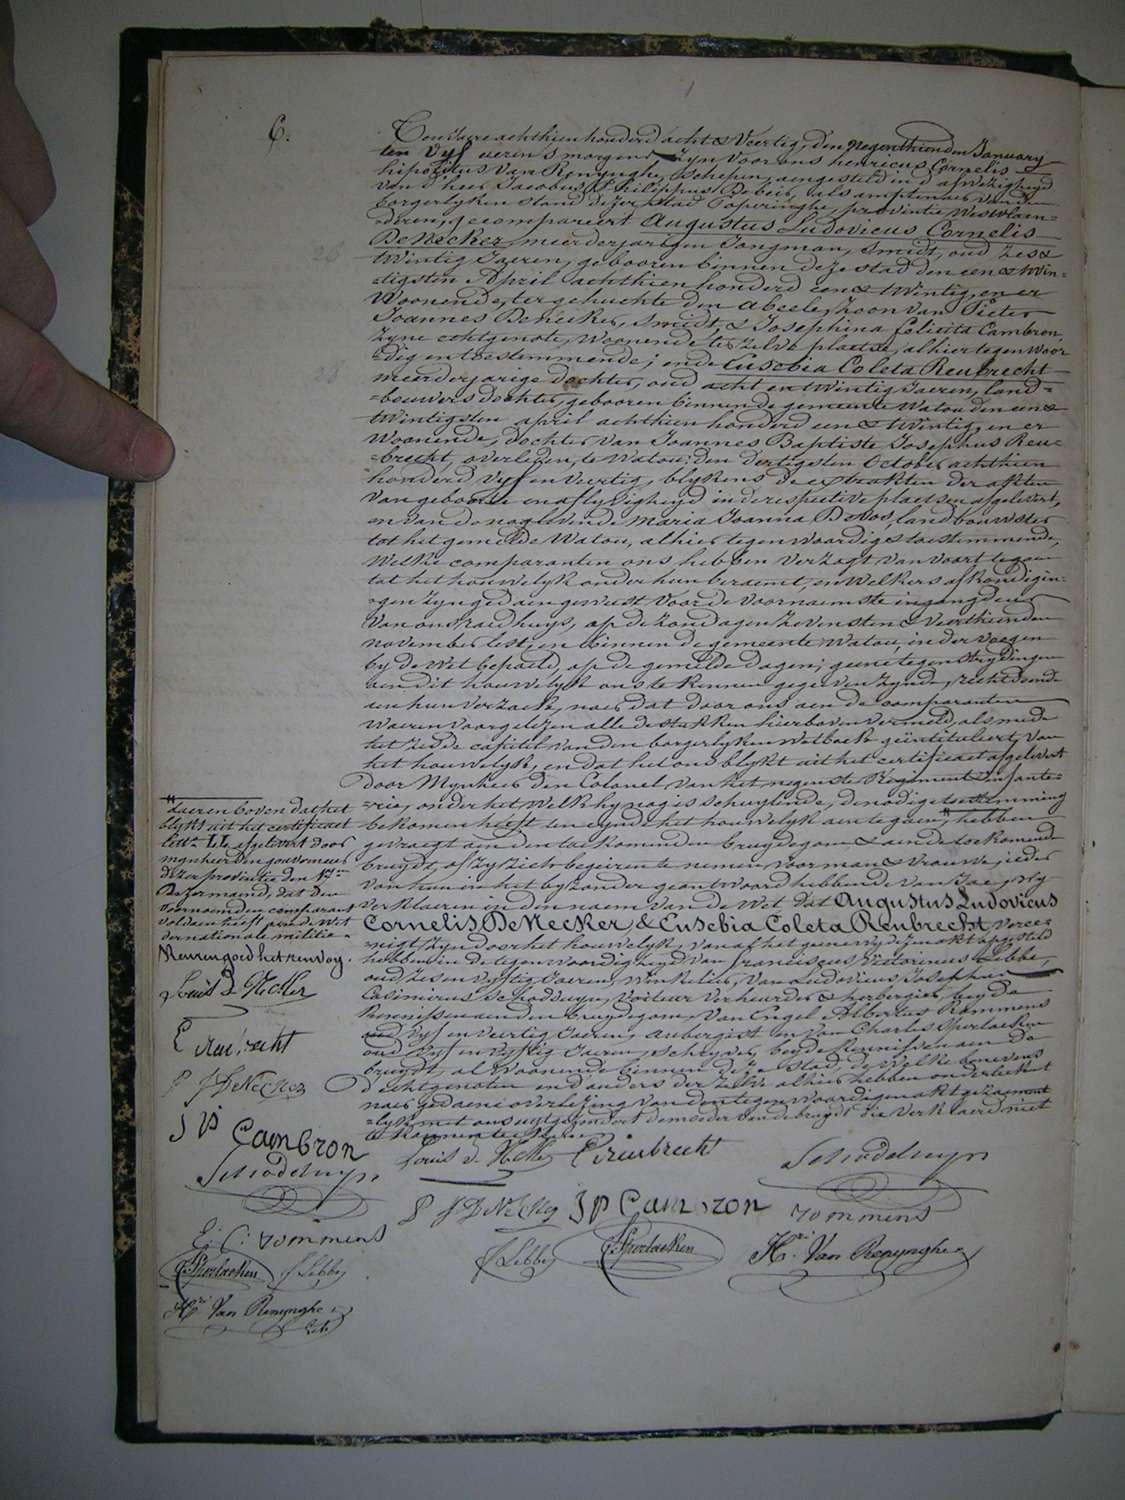 6.
Ten Jaere achthien honderd acht & Veertig, den negenthienden January
ten Vyf ueren s'morgens zyn voor ons henricus Cornelis
hipolitus Van Renynghe, Schepen, aengesteld in d'afwezigheyd
van d'heer Jacobus Philippus Debeir, als amptenaer van den
borgerlyken stand dezer stad Poperinghe, provintie Westvlaen-
deren, gecompareert Augustus Ludovicus Cornelis
DeNecker, meerderjarigen Jongman, Smidt, oud zes &
twintig Jaeren, gebooren binnen deze stad den een & twin-
tigsten April achthien honderd een & twintig, en er
woonende, ter gehuchte den abeele, Zoon van Pieter
Joannes DeNecker, Smidt, & Josephina felicita Cambron,
zyne echtgenote, woonende ter zelve plaetse, alhier tegenwoor-
dig en toestemmende; ende Eusebia Coleta Reubrecht
meerderjarige dochter, oud acht en twintig Jaeren, land-
bouwers dochter, gebooren binnen de gemeente Watou den een &
twintigsten april achthien honderd een & twintig, en er
woonende, dochter van Joannes Baptiste Josephus Reu-
brecht, overleden te Watou, den dertigsten October achthien
honderd vyf en veertig, blykens de extrakten der akten
van geboorte en aflyvigheyd in de respective plaetsen afgelevert,
en van de nog levende Maria Joanna Devos, landbouwster
tot het gemelde Watou, alhier tegenwoordig & toestemmende,
welke comparanten ons hebben verzogt van voort te gaen
tot het houwelyk onder hun beraemt, en welkers afkondigin-
gen zyn gedaen geweest voor de voornaemste ingangdeur
van ons raedhuys, op de zondagen zevensten & veerthienden
november lest, en binnen de gemeente Watou, in der voegen
by de wet bepaeld, op de gemelde dagen; geene tegenstrydingen
aen dit houwelyk ons te kennen gegeven zynde, rechtdoende
aen hun verzoek, naer dat door ons aen de comparanten
waeren voorgelezen alle de stukken hier boven vermeld, als mede
het zesde capitel van den borgerlyken wetboek geïntituleert van
het houwelyk, en dat het ons blykt uit het certificaet afgelevert
door Mynheer den Colonel van het negenste Regiment infante-
rie, onder het welk hy nog is schuylende, de nodige toestemming
bekomen heeft ten eynde het houwelyk aen te gaen, # hebben
gevraegt aen den toekomenden bruydegom & aen de toekomende
bruydt, of zy zich begeiren te nemen voor man & vrouw, ieder
van hun in het byzonder geantwoord hebbende van Jae, wy
verklaeren in den naem van de Wet dat Augustus Ludovicus
Cornelis DeNecker & Eusebia Coleta Reubrecht veree-
nigt zyn door het houwelyk, van al het geene wy dezen akt opgesteld
hebben in de tegenwoordigheyd van franciscus Victorinus Lebbe,
oud zes en vyftig Jaeren, winkelier, van Ludovicus Josephus
Casimirus Schoddeuyn, voituer verhuerder & herbergier, beyde
kennissen aen den bruydegom, van Engel Albertus Rommens
oud vyf en veertig Jaeren, aubergist en van Charles Sperlaeken
oud vyf en vyftig Jaeren, Schryver, beyde kennissen aen de
bruydt, al woonende binnen deze stad, de welke benevens
d'echtgenoten en d'anders der zelve alhier hebben onderteekent
naer gedaene overlezing van den tegenwoordigen akt gezament-
lyk met ons uytgezondert de moeder van de bruydt die verklaerd niet
te konnen teekenen.
# daeren boven dat het
blykt uit het certificaet
litt.ª LL, afgelevert door
mynheer den gouverneur
dezer provintie den
dezer maend, dat den
voornoemden comparant
voldaen heeft aen de wet
der nationale militie.
Keuren goed het renvoy.
Louis De Necker
E reubrecht
P J DeNecker
J P Cambron
Schoddeuyn
E: C: rommens
C. Sperlaeken f Lebbe
Hri Van Renynghe
Louis De Necker E reubrecht Schoddeuyn
P J DeNecker J P Cambron rommens
f Lebbe C. Sperlaeken Hri Van Renynghe